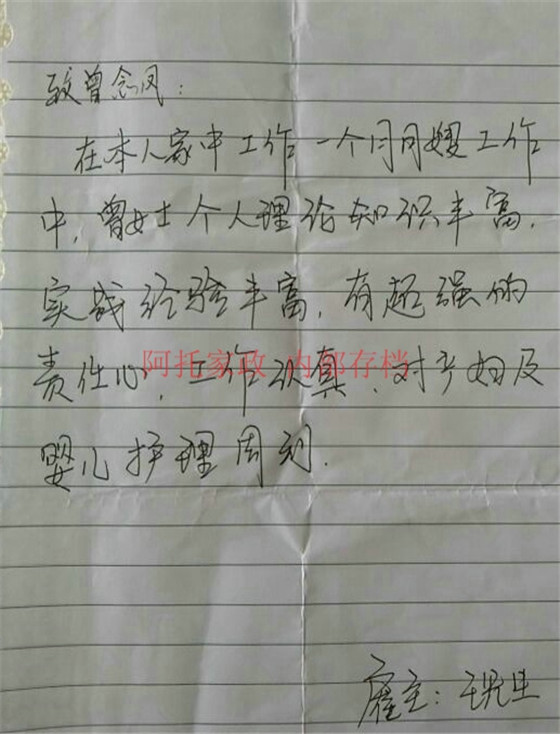 致曾念凤：
在本人家中工作一个月月嫂工作
中，曾女士个人理论知识丰富，
实战经验丰富，有超强的
责任心，工作认真，对产妇及
阿托家政 内部存档
婴儿护理周刻．
雇主：王先生